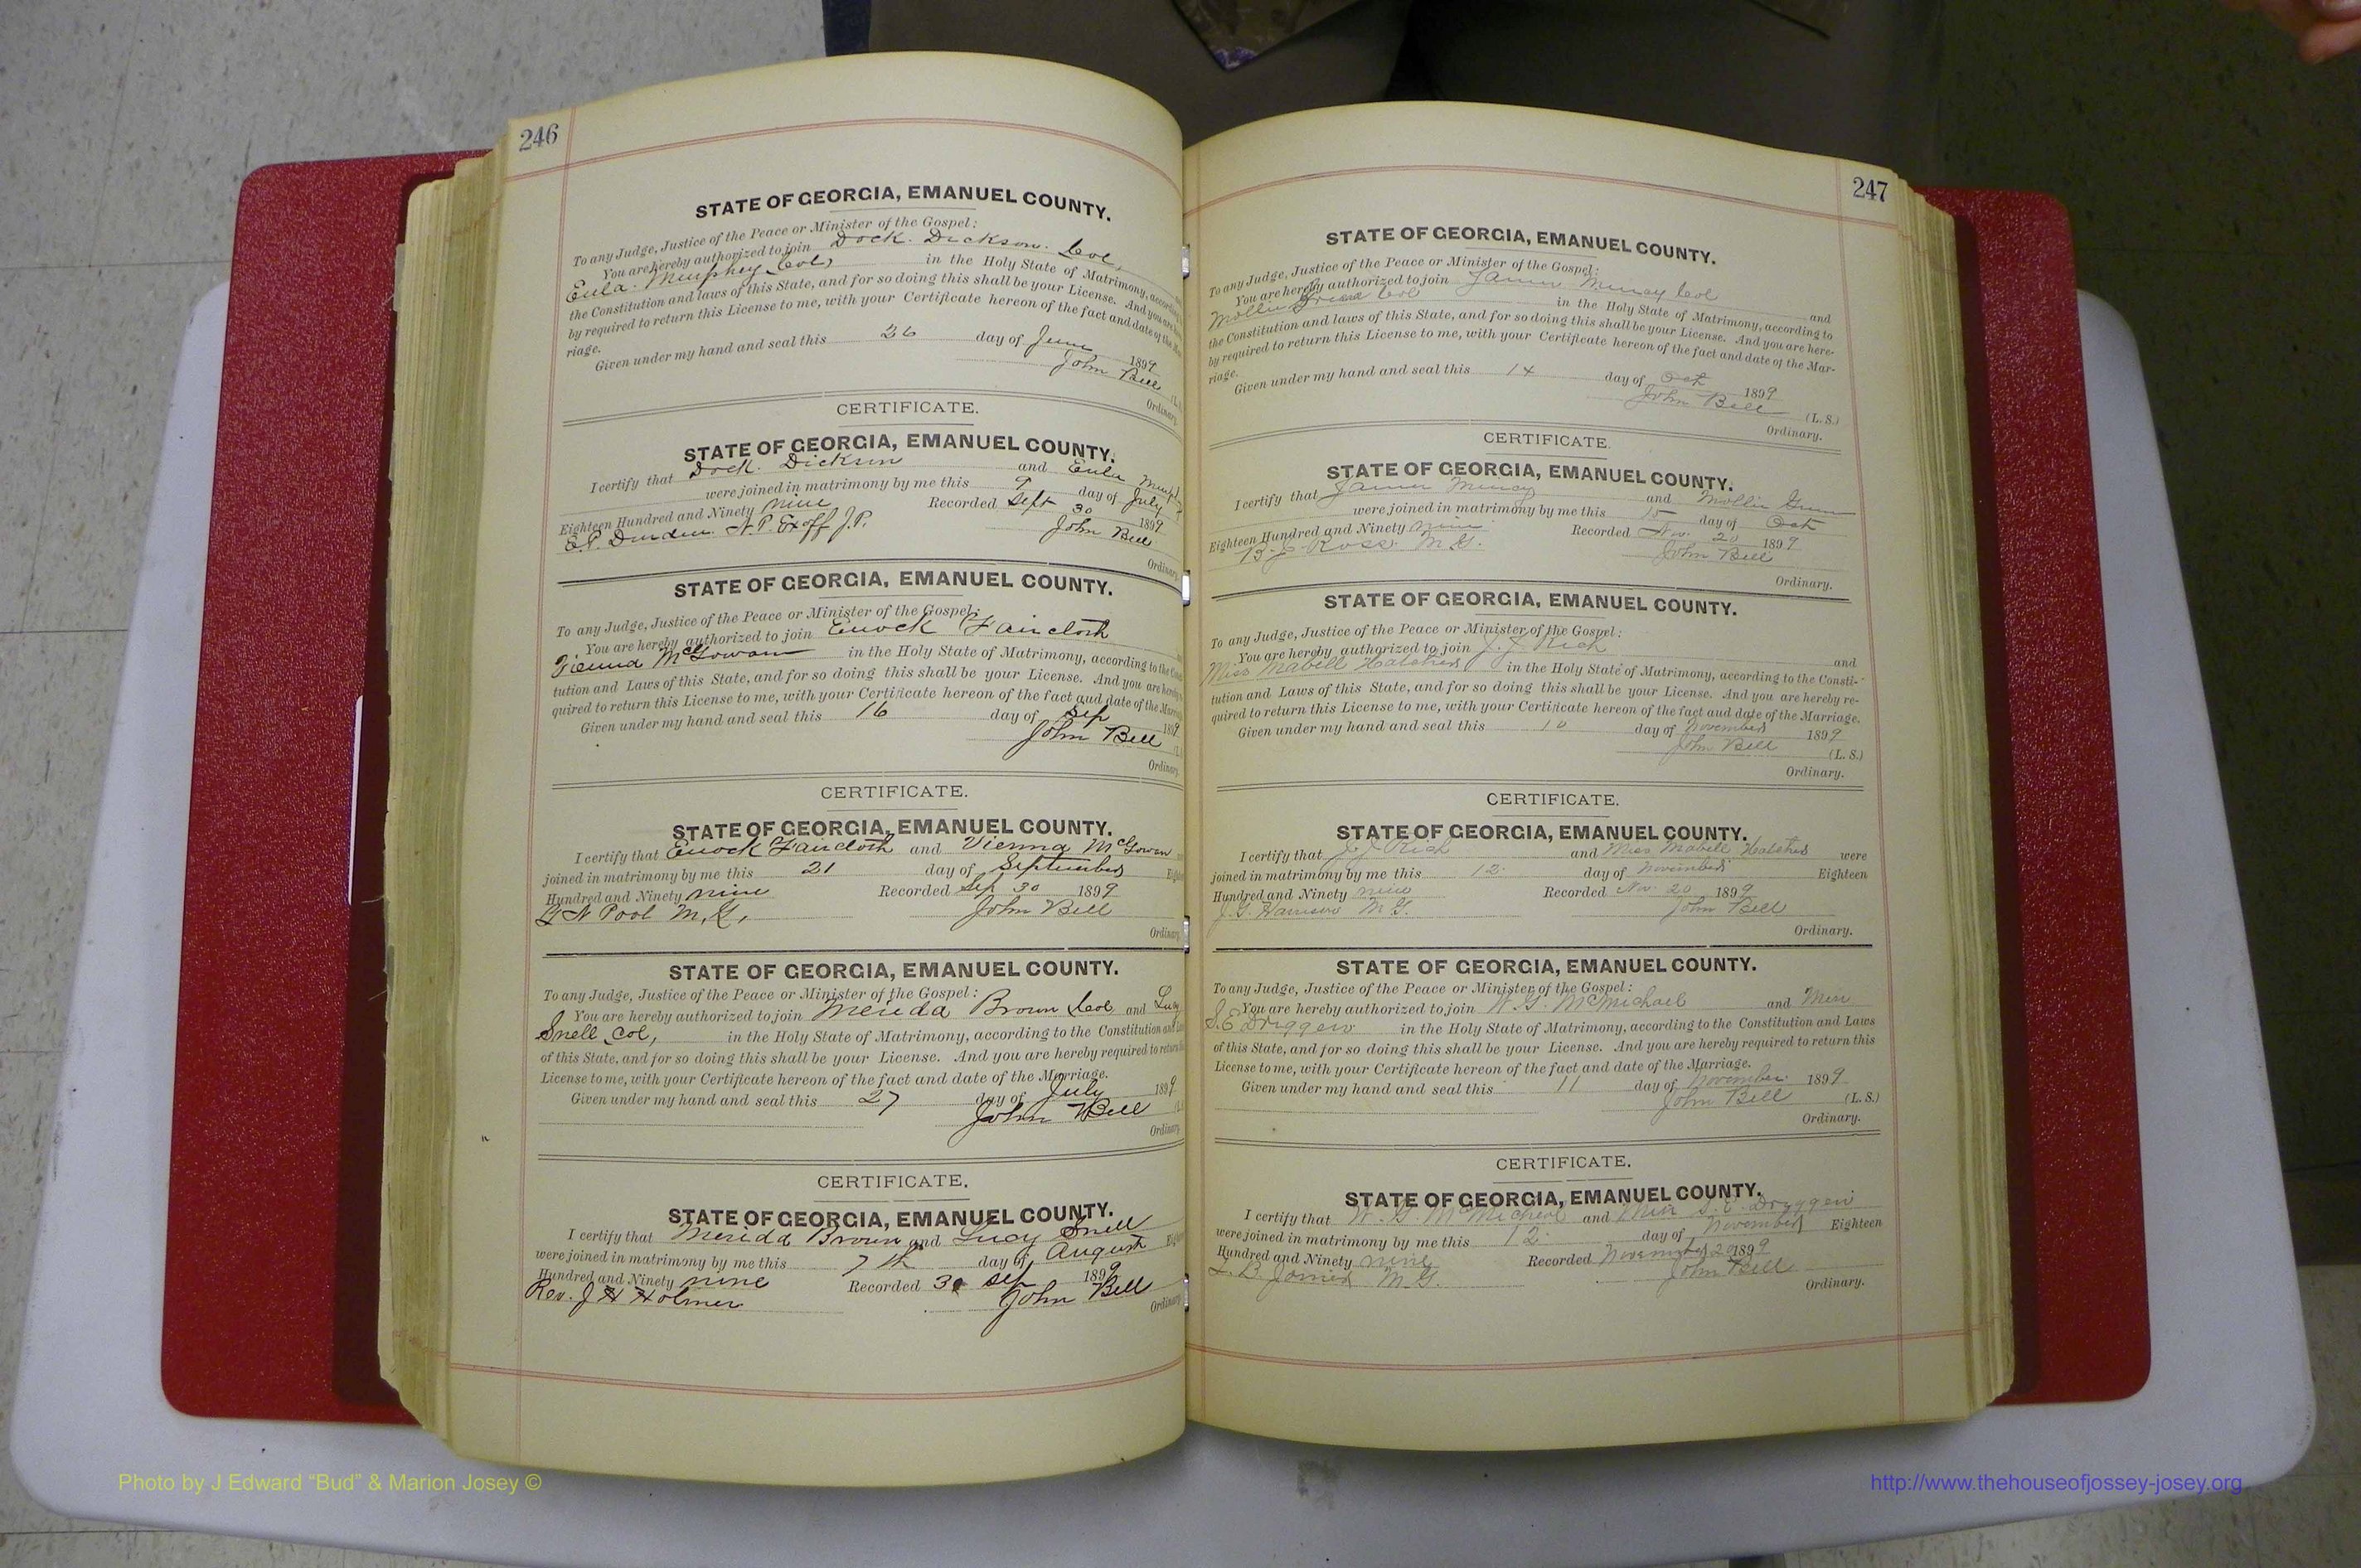 246
STATE OF GEORGIA, EMANUEL COUNTY.
To any Judge, Justice of the Peace or Minister of the Gospel:
You are hereby authorized to join Dock. Dickson. Col,
Eula. Murphey Col, in the Holy State of Matrimony, accordin
the Constitution and laws of this State, and for so doing this shall be your License. And you are
by required to return this License to me, with your Certificate hereon of the fact and date of the
riage.
Given under my hand and seal this 26 day of June 1899
John Bell (L.
Ordinary
CERTIFICATE.
STATE OF GEORGIA, EMANUEL COUNTY.
I certify that Dock. Dickson and Eula
were joined in matrimony by me this 9 day of July
Eighteen Hundred and Ninety nine Recorded Sept 30 1899
E.P. Durden. N.P. Exoff J.P. John Bell
Ordinary
STATE OF GEORGIA, EMANUEL COUNTY.
To any Judge, Justice of the Peace or Minister of the Gospel:
You are hereby authorized to join Enock Faircloth
Vienna McGowan in the Holy State of Matrimony, according to the
tution and Laws of this State, and for so doing this shall be your License. And you are hereby
quired to return this License to me, with your Certificate hereon of the fact and date of the
Given under my hand and seal this 16 day of Sep 1899
John Bell
Ordinary
CERTIFICATE.
STATE OF GEORGIA, EMANUEL COUNTY.
I certify that Enock Faircloth and Vienna McGowan
joined in matrimony by me this 21 day of September
Hundred and Ninety nine Recorded Sep 30 1899
N Pool M,G, John Bell
Ordinary
STATE OF GEORGIA, EMANUEL COUNTY.
To any Judge, Justice of the Peace or Minister of the Gospel:
You are hereby authorized to join Merida Brown Col and Lucy
Snell Col, in the Holy State of Matrimony, according to the Constitution and
of this State, and for so doing this shall be your License. And you are hereby required to return
License to me, with your Certificate hereon of the fact and date of the Marriage.
Given under my hand and seal this 27 day of July 1899
John Bell
Ordinary
CERTIFICATE.
STATE OF GEORGIA, EMANUEL COUNTY.
I certify that Merida Brown and Lucy Snell
were joined in matrimony by me this 7th day of August
Hundred and Ninety nine Recorded 30 Sep 1899
Rev. J H Holmes John Bell
Ordinary
247
STATE OF GEORGIA, EMANUEL COUNTY.
To any Judge, Justice of the Peace or Minister of the Gospel:
You are hereby authorized to join James Mincy Col and
Mollie Col in the Holy State of Matrimony, according to
the Constitution and laws of this State, and for so doing this shall be your License. And you are here-
by required to return this License to me, with your Certificate hereon of the fact and date of the Mar-
riage.
Given under my hand and seal this 14 day of Oct 1899
John Bell (L. S.)
Ordinary.
CERTIFICATE.
STATE OF GEORGIA, EMANUEL COUNTY.
I certify that James Mincy and Mollie
were joined in matrimony by me this 15 day of Oct
Eighteen Hundred and Ninety nine Recorded Nov. 20 1899
Ross. M.G. John Bell
Ordinary.
STATE OF GEORGIA, EMANUEL COUNTY.
To any Judge, Justice of the Peace or Minister of the Gospel:
You are hereby authorized to join J. J Rich and
Miss Mabell Hatcher in the Holy State of Matrimony, according to the Consti-
tution and Laws of this State, and for so doing this shall be your License. And you are hereby re-
quired to return this License to me, with your Certificate hereon of the fact and date of the Marriage.
Given under my hand and seal this 10 day of November 1899
John Bell (L. S.)
Ordinary.
CERTIFICATE.
STATE OF GEORGIA, EMANUEL COUNTY.
I certify that J. J Rich and Miss Mabell Hatcher were
joined in matrimony by me this 12 day of November Eighteen
Hundred and Ninety nine Recorded Nov. 20 1899
J. G. Harrison M G. John Bell
Ordinary.
STATE OF GEORGIA, EMANUEL COUNTY.
To any Judge, Justice of the Peace or Minister of the Gospel:
You are hereby authorized to join W. G. McMichael and Miss
S. E Driggers in the Holy State of Matrimony, according to the Constitution and Laws
of this State, and for so doing this shall be your License. And you are hereby required to return this
License to me, with your Certificate hereon of the fact and date of the Marriage.
Given under my hand and seal this 11 day of November 1899
John Bell (L. S.)
Ordinary.
CERTIFICATE.
STATE OF GEORGIA, EMANUEL COUNTY.
I certify that W. G. McMichael and Miss S. E. Driggers
were joined in matrimony by me this 12 day of November Eighteen
Hundred and Ninety nine Recorded November 20 1899
L. B. Joiner M. G. John Bell
Ordinary.
Photo by J Edward “Bud” & Marion Josey ©
http://www.thehouseofjossey-josey.org